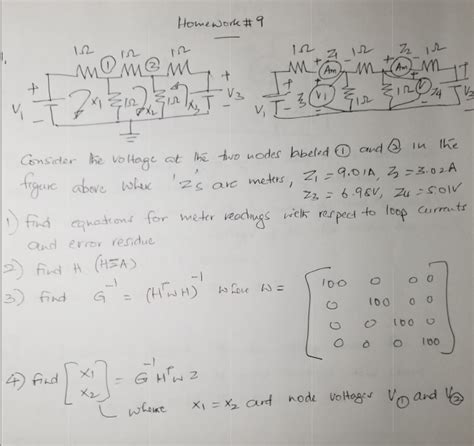 Homework #9
1.
1Ω 1Ω 1Ω
① ②
+ V1 - x1 1Ω x2 1Ω x3 + - V3
1Ω Z1 1Ω Z2 1Ω
+ Am - + Am -
+ V1 - Z3 V1 1Ω 1Ω V Z4 + V3
Consider the voltage at the two nodes labeled ① and ② in the
figure above where 'Z's are meters, Z1 = 9.01A, Z2 = 3.02A
Z3 = 6.98V, Z4 = 5.01V
1) find equations for meter readings with respect to loop currents
and error residue
2) find H (H≡A)
3) find G^-1 = (H^T W H)^-1 where W =
100 0 0 0
0 100 0 0
0 0 100 0
0 0 0 100
4) find [x1 x2] = G^-1 H^T W Z
where x1 = x2 and node voltages V① and V②